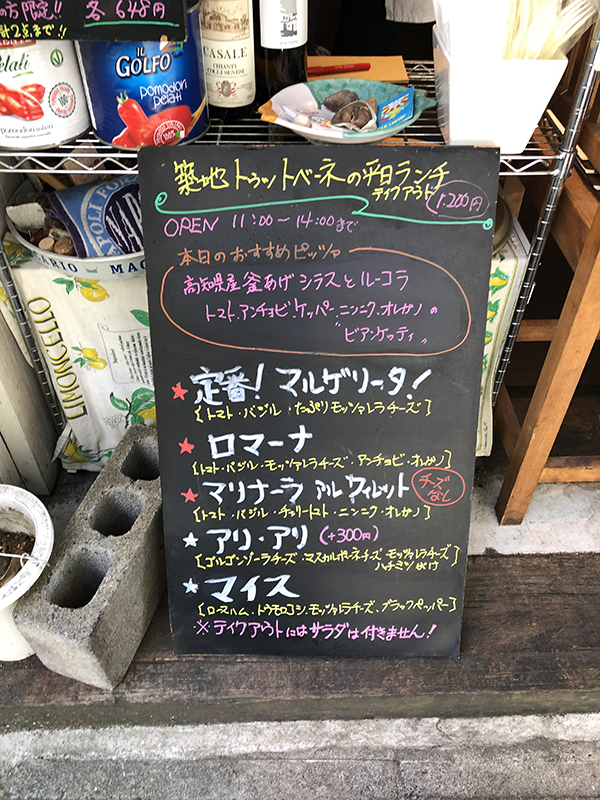 の方限定!! 各648円
計2点まで!!
elati
pomodorini
100%
IL
GOLFO
pomodori
pelati
100%
CASALE
CHIANTI
COLLI SENESI
NAPOLI FOOD
LIMONCELLO
築地トゥットベーネの平日ランチ
テイクアウト 1.200円
OPEN 11:00〜14:00まで
本日のおすすめピッツァ
高知県産釜あげシラスとルーコラ
トマト、アンチョビ、ケッパー、ニンニク、オレガノの
"ビアンケッティ"
★定番!マルゲリータ!
[トマト・バジル・たっぷりモッツァレラチーズ]
★ロマーナ
[トマト・バジル・モッツァレラチーズ・アンチョビ・オレガノ]
★マリナーラ アル フィレット チーズなし
[トマト・バジル・チェリートマト・ニンニク・オレガノ]
★アリ・アリ (+300円)
[ゴルゴンゾーラチーズ・マスカルポーネチーズ モッツァレラチーズ
ハチミツがけ]
★マイス
[ロースハム・トウモロコシ・モッツァレラチーズ・ブラックペッパー]
※テイクアウトにはサラダは付きません!